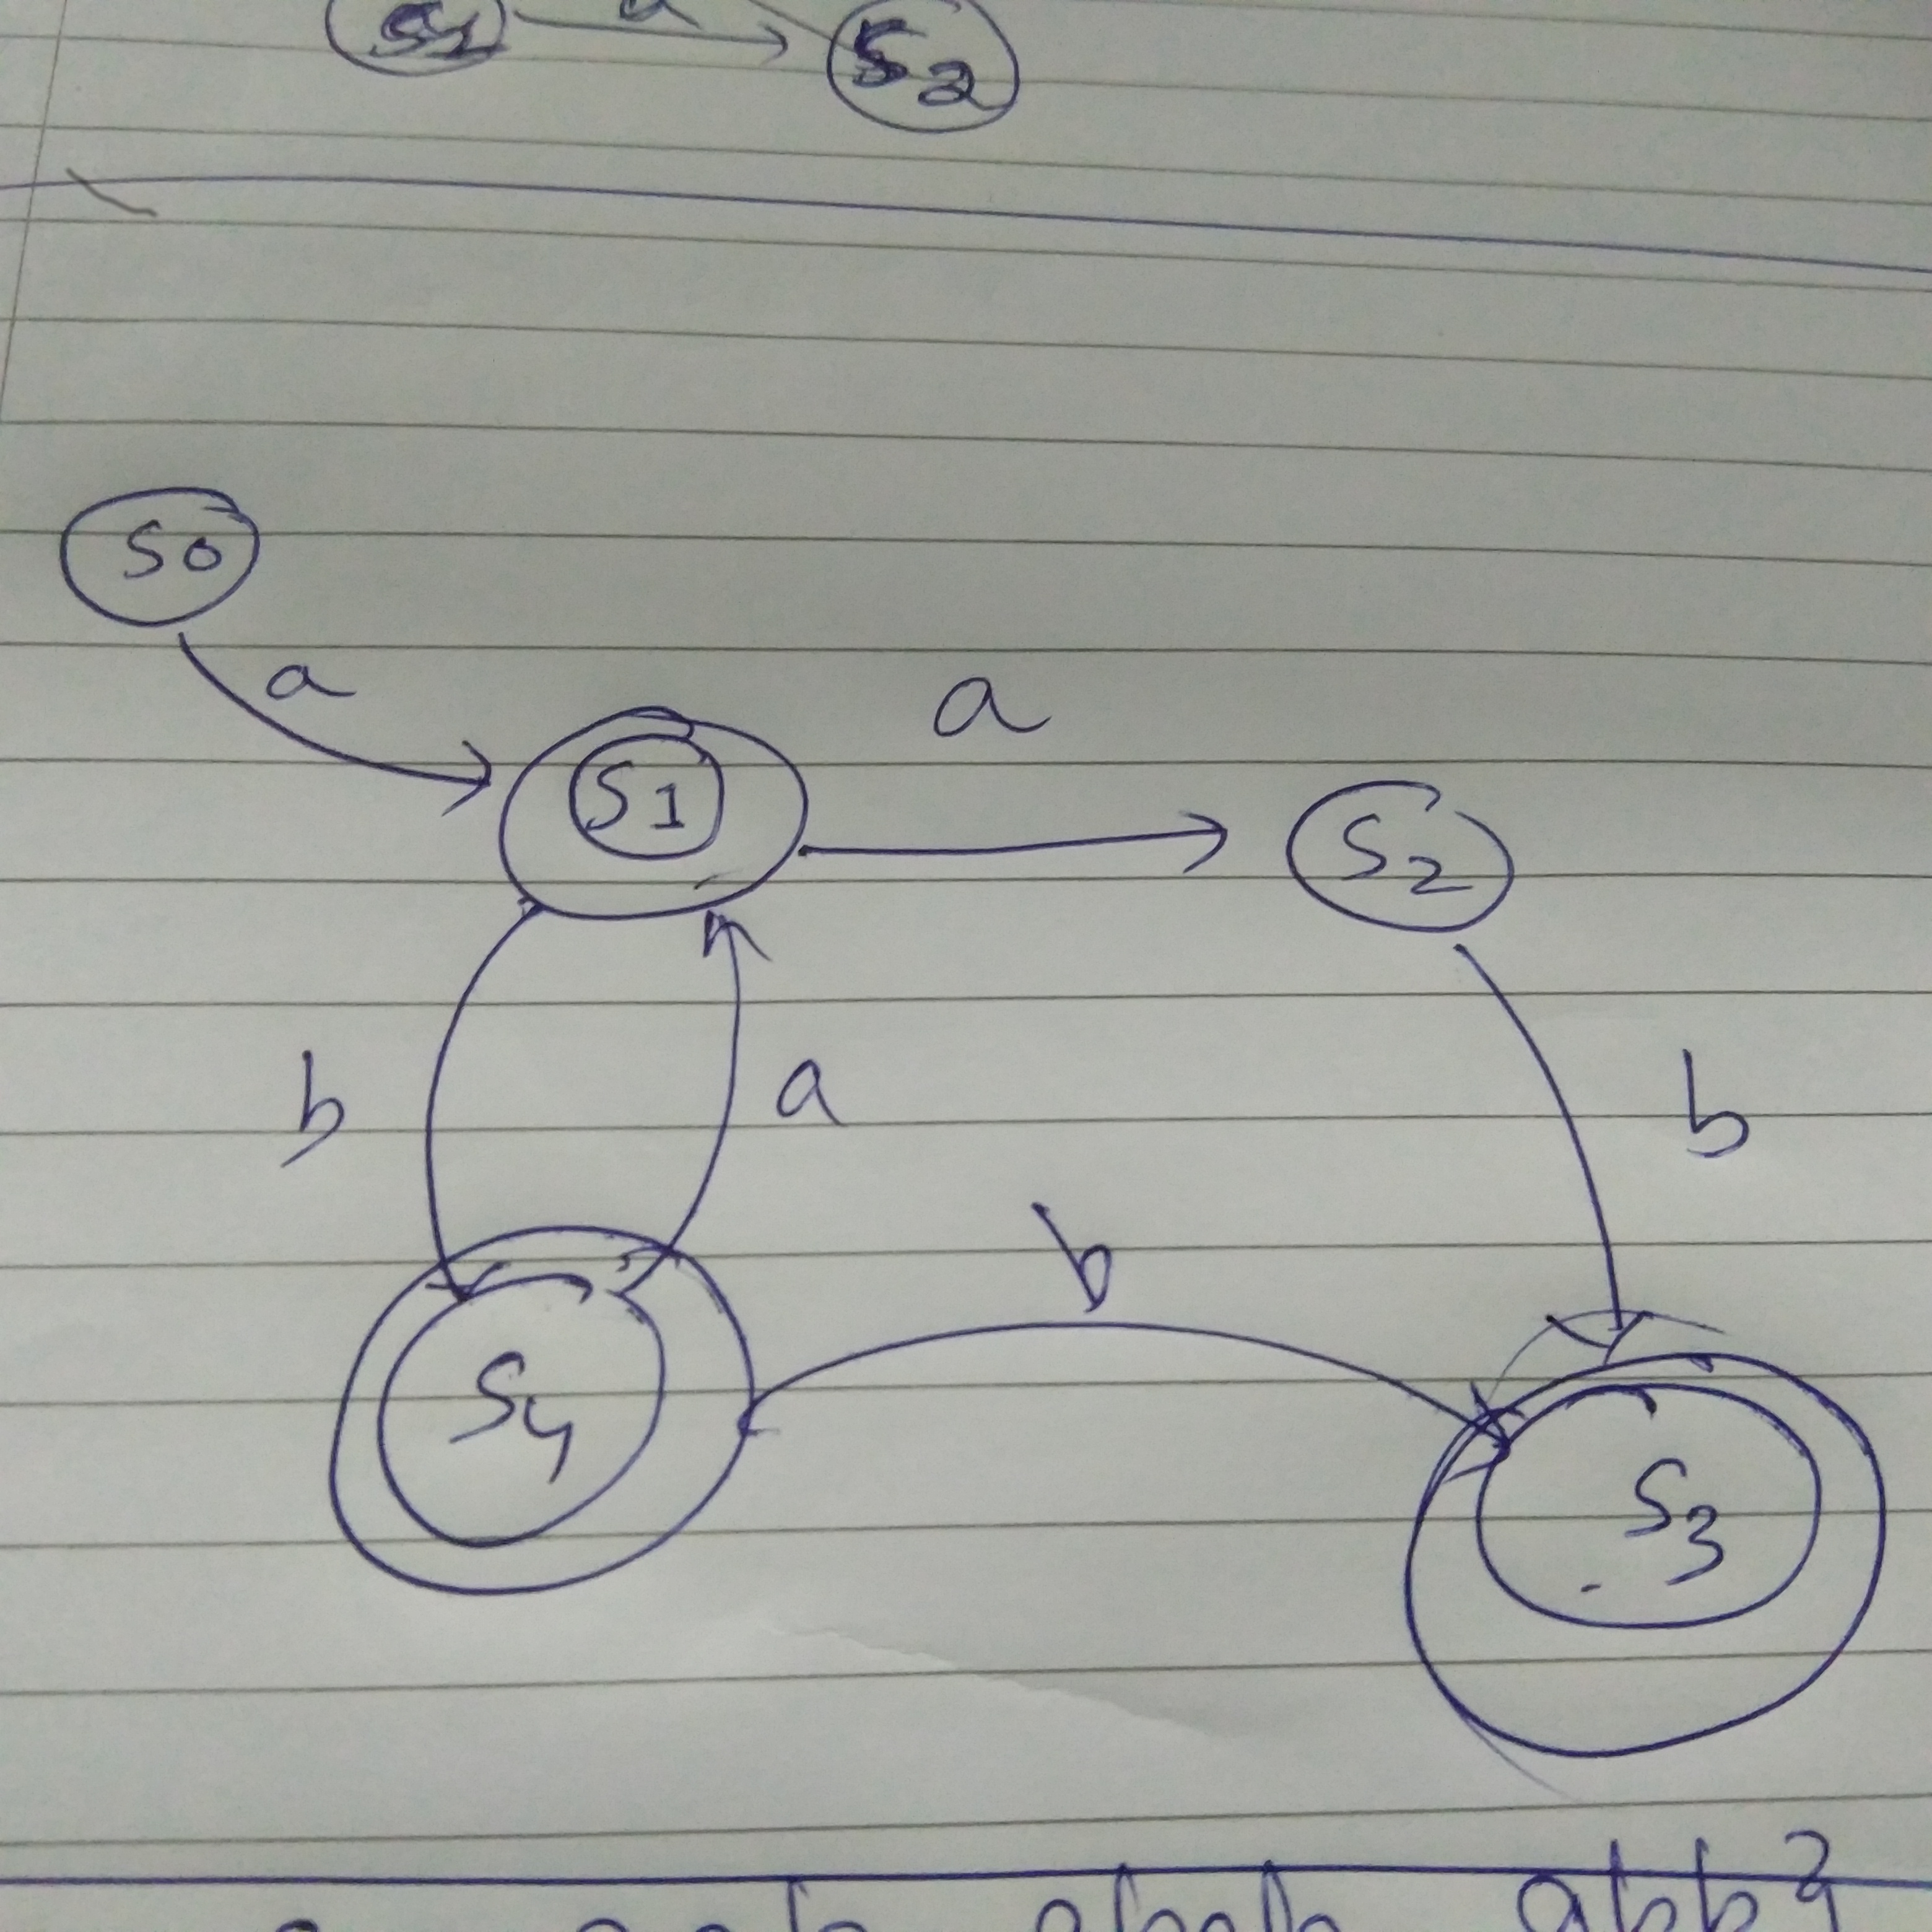 S1 a S2
S0
a
a
S1
S2
b a b
b
S4
S3
abb}